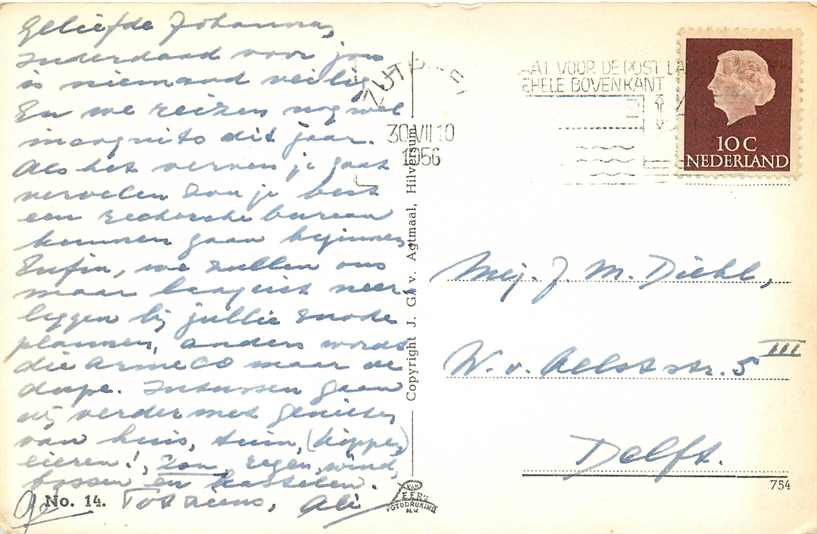 Geliefde Johanna,
Inderdaad voor jou
is niemand veilig
En we reizen nog wel
incognito dit jaar.
Als het verven je gaat
vervelen zou je best
een recherche bureau
kunnen gaan beginnen
Enfin, we zullen ons
maar leggen bij jullie snode
plannen, anders wordt
die arme Co maar de
dupe. Intussen gaan
wij verder met genieten
van huis, tuin, (kippen)
eieren!, zon, regen, wind,
bossen en kastelen.
Tot ziens, Ali
No. 14.
ZUTPHEN
30 VII 10
1956
AAT VOOR DE POST LA
EHELE BOVENKANT
10 C
NEDERLAND
Copyright J. G. v. Agtmaal, Hilversum
Mej. J. M. Diehl,
W. v. Aelststr. 5 III
Delft.
754
VAN
FOTODRUKINDUSTRIE
N.V.